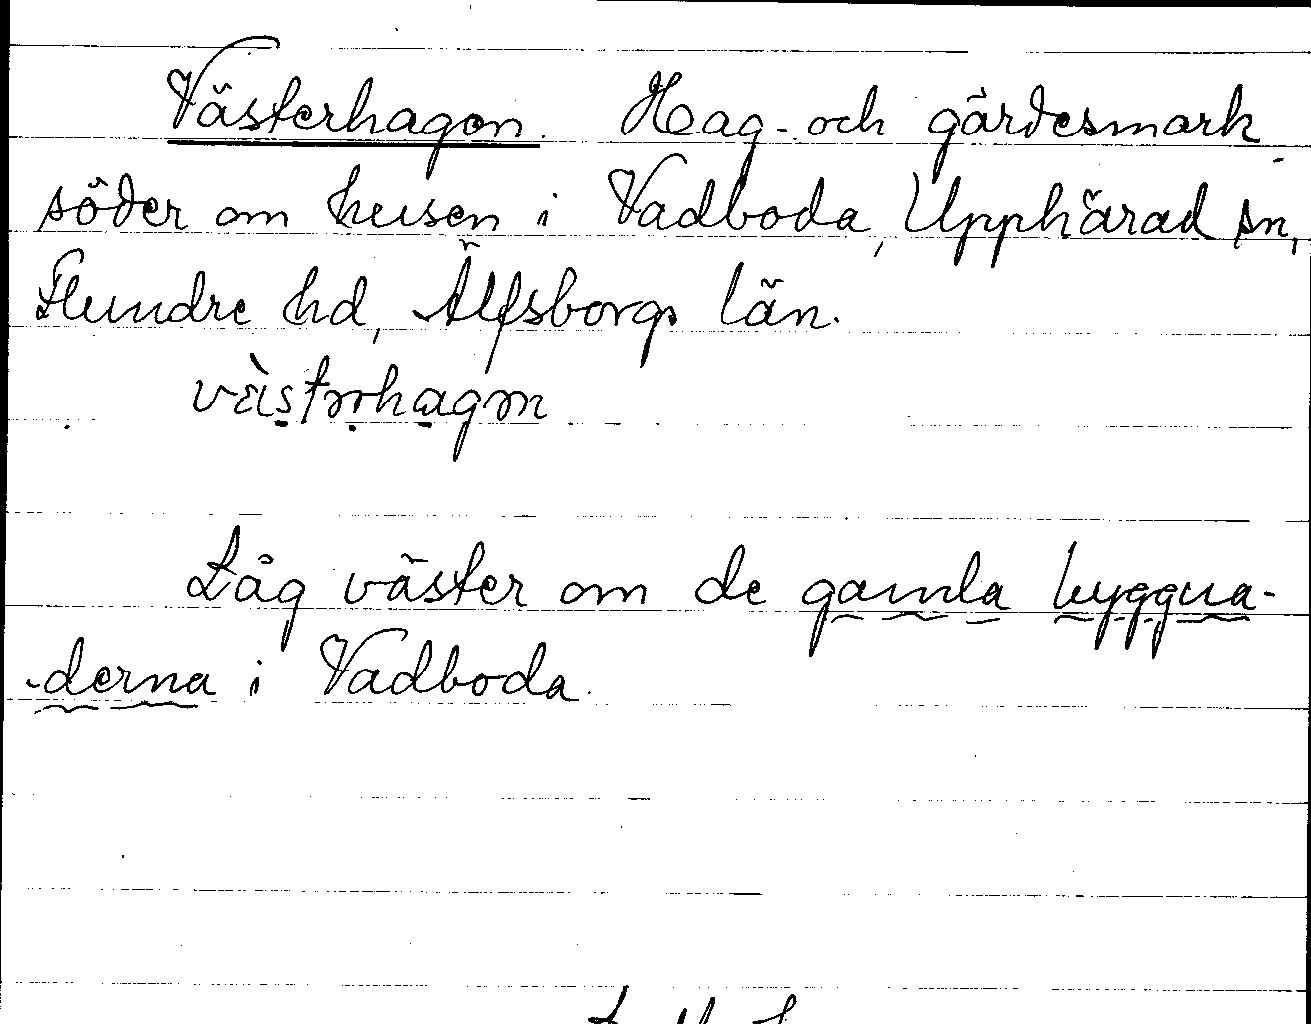 Västerhagen. Hag- och gärdesmark
söder om husen i Vadboda, Upphärad sn,
Flundre hd, Älfsborgs län.
Låg väster om de gamla byggna-
-derna i Vadboda.